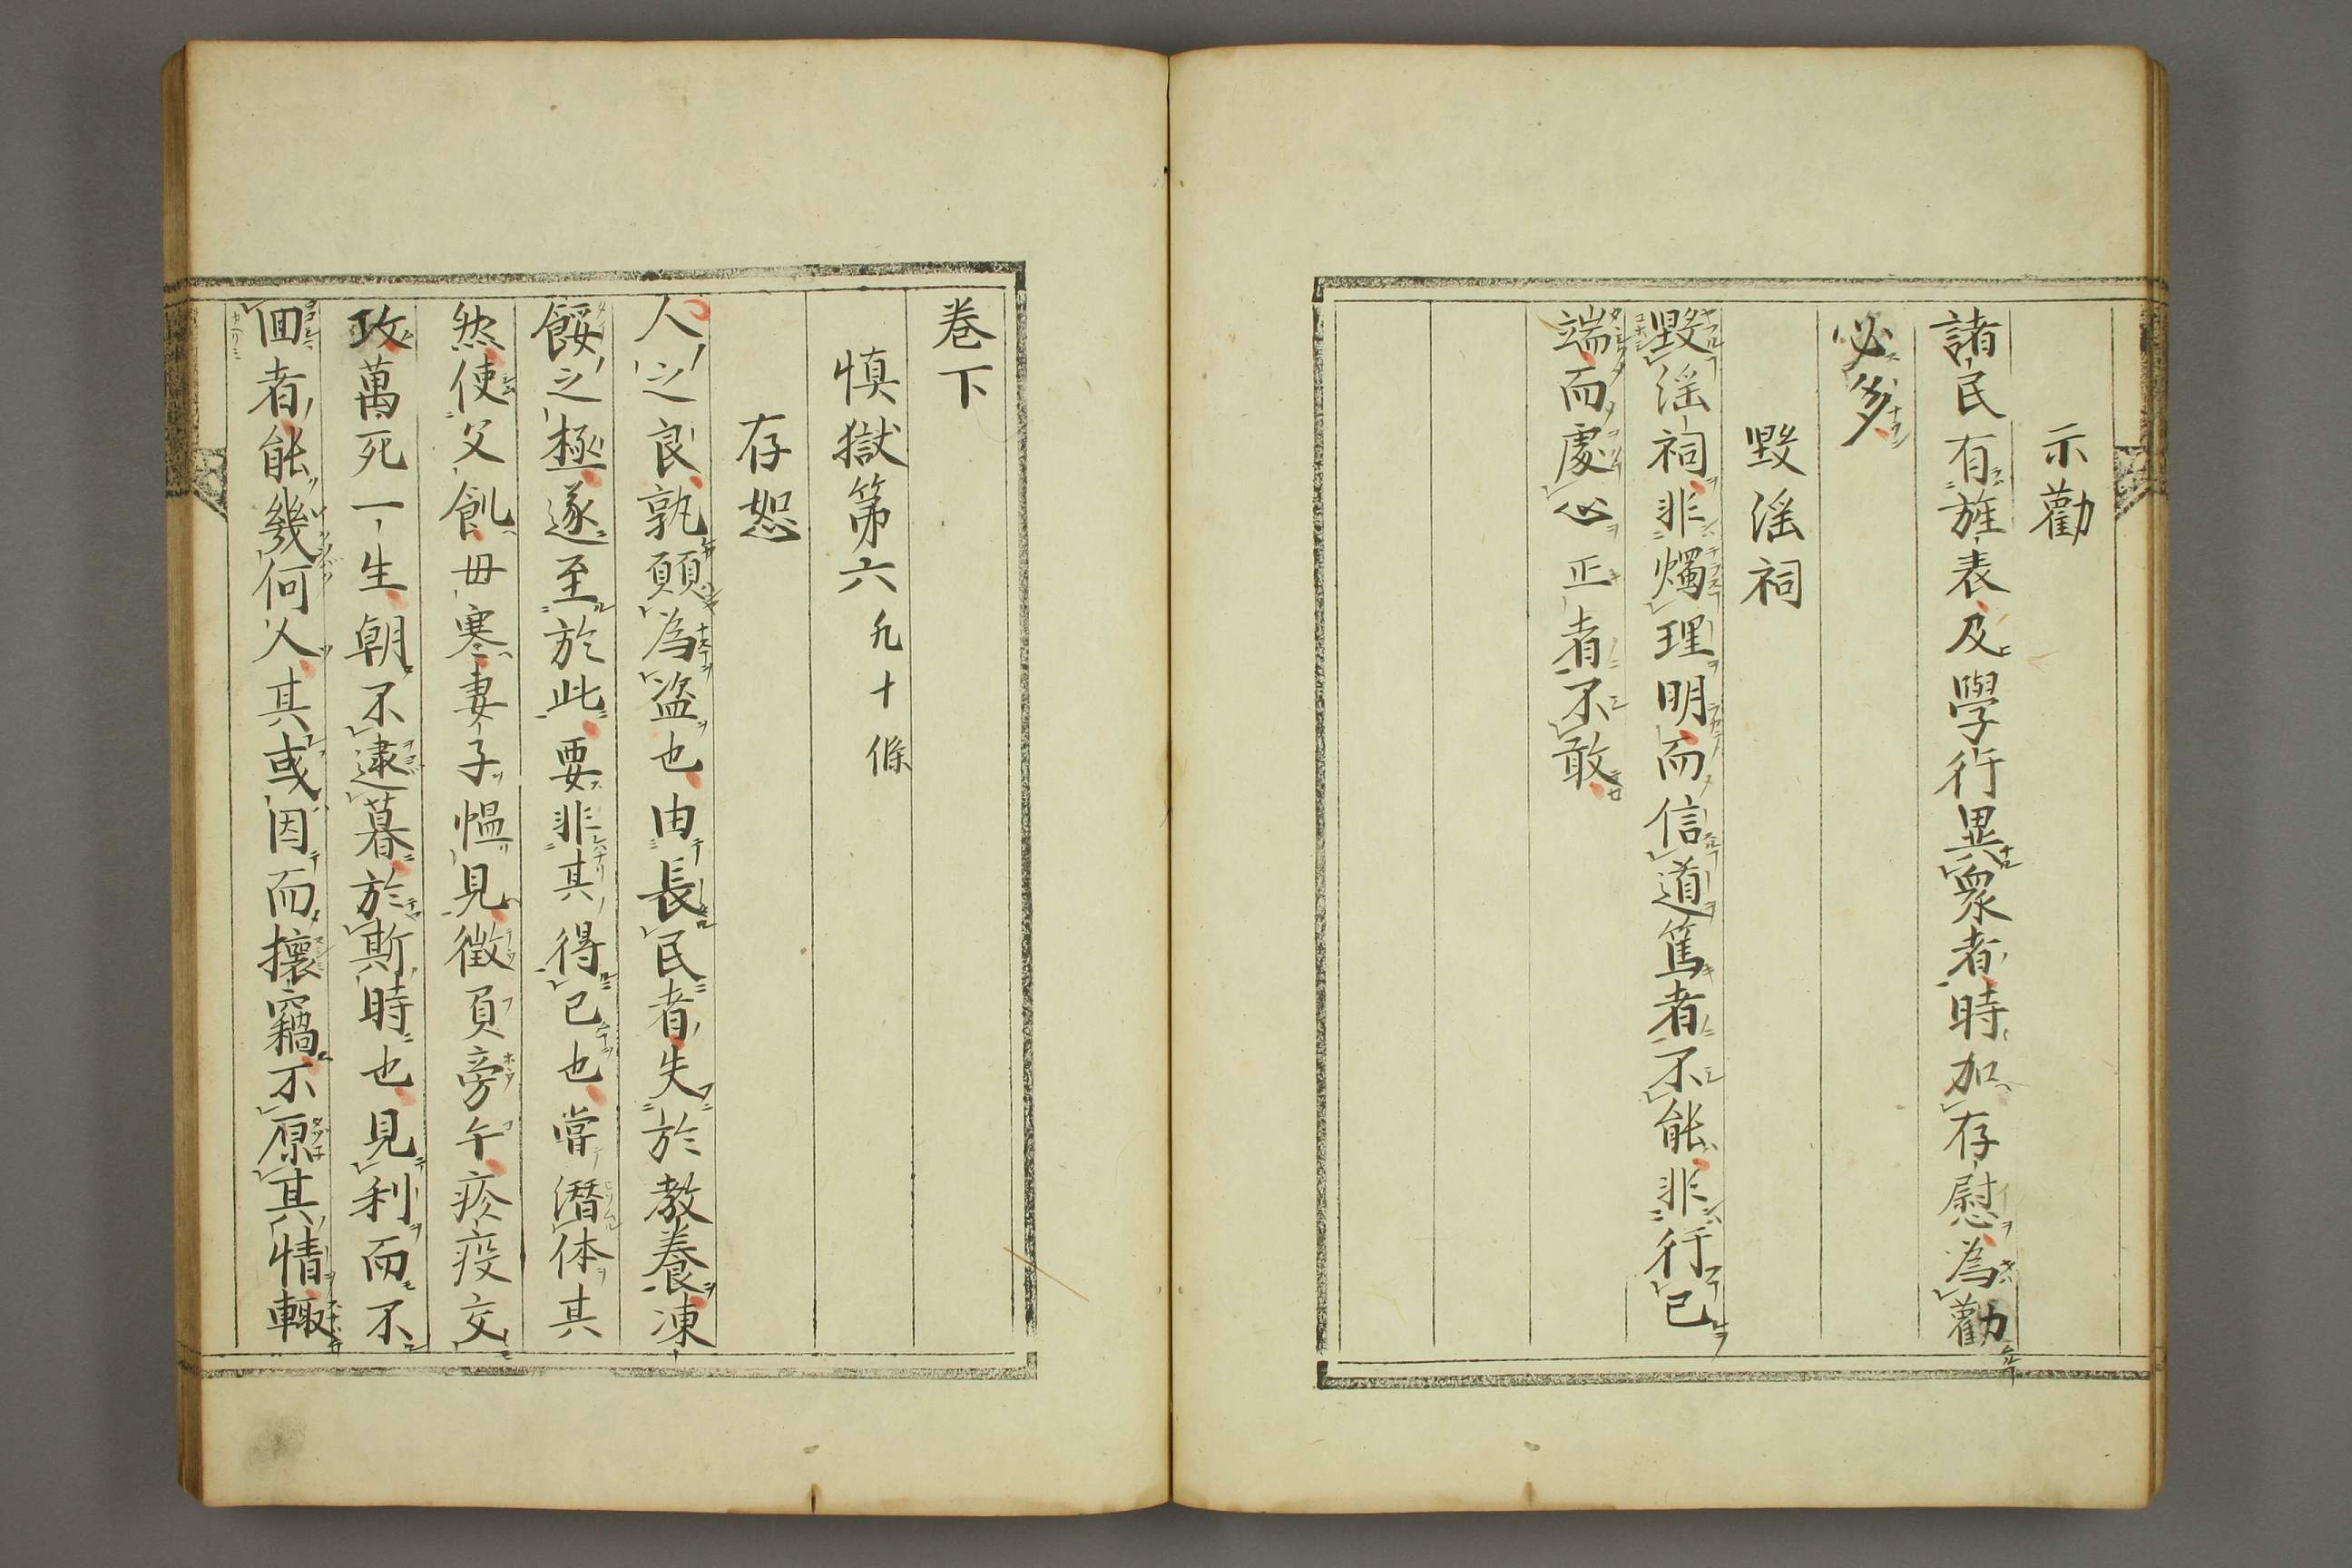 示勸
諸民有旌表及學行異衆者時加存慰為勸
必多
毀淫祠
毀淫祠非燭理明而信道篤者不能非行已
端而處心正者不敢
卷下
慎獄第六 凡十條
存恕
人之良孰願為盜也由長民者失於教養凍
餒之極遂至於此要非其得已也嘗潛体其
然使父飢母寒妻子慍見徵負旁午疹疫交
攻萬死一生朝不逮暮於斯時也見利而不
回者能幾何人其或因而攘竊不原其情輙